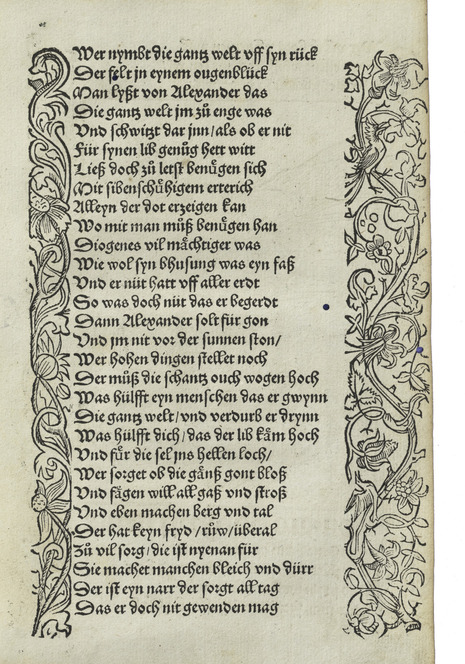 Wer nymbt die gantz welt vff syn rück
Der felt jn eynem ougenblück
Man lyßt von Alexander das
Die gantz welt jm zů enge was
Vnd schwitzt dar jnn / als ob er nit
Für synen lib genůg hett witt
Ließ doch zů letst benůgen sich
Mit sibenschůhigem erterich
Alleyn der dot erzeigen kan
Wo mit man můß benůgen han
Diogenes vil mächtiger was
Wie wol syn bhusung was eyn faß
Vnd er nüt hatt vff aller erdt
So was doch nüt das er begerdt
Dann Alexander solt für gon
Vnd jm nit vor der sunnen ston /
Wer hohen dingen stellet noch
Der můß die schantz ouch wogen hoch
Was hülfft eyn menschen das er gwynn
Die gantz welt / vnd verdurb er drynn
Was hülfft dich / das der lib käm hoch
Vnd für die sel jns hellen loch /
Wer sorget ob die gänß gont bloß
Vnd fägen will all gaß vnd stroß
Vnd eben machen berg vnd tal
Der hat keyn fryd / růw / überal
Zů vil sorg / die ist nyenan für
Sie machet manchen bleich vnd dürr
Der ist eyn narr der sorgt all tag
Das er doch nit gewenden mag